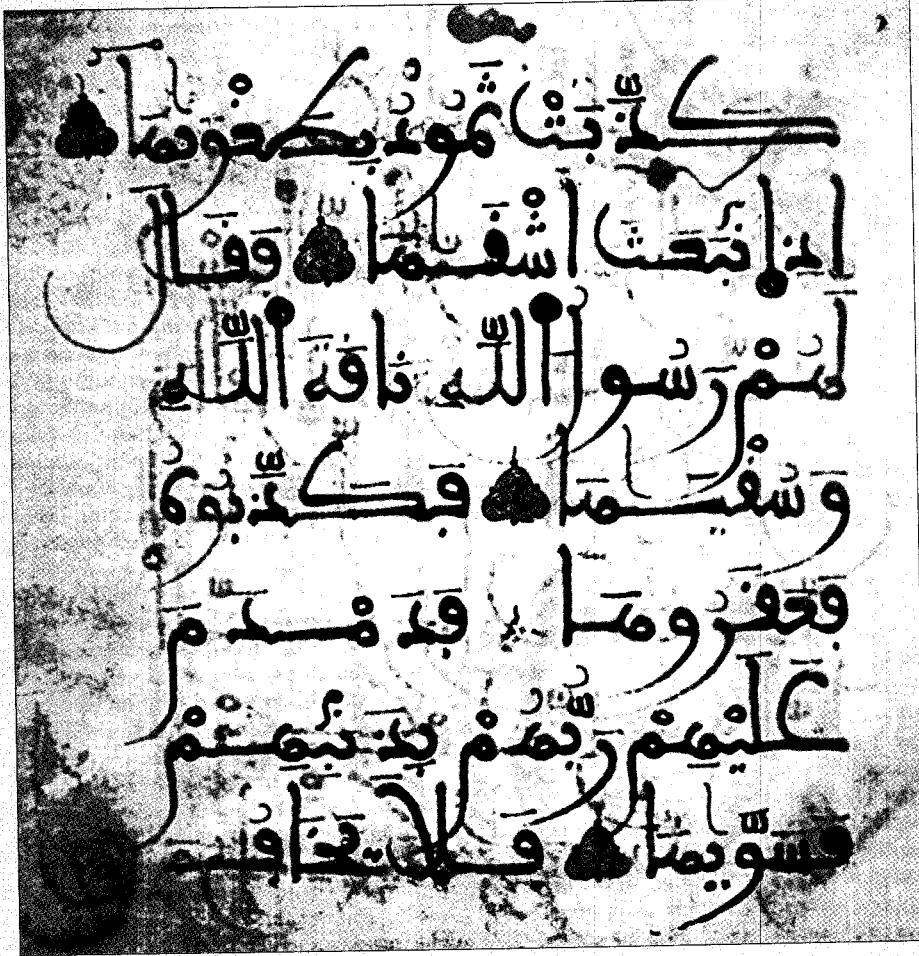 كَذَّبَتْ ثَمُودُ بِطَغْوٰيهَا
إِذِ اِنۢبَعَثَ أَشْقٰيهَا فَقَالَ
لَهُمْ رَسُولُ اُللَّهِ نَاقَةَ اَللَّهِ
وَسُقْيٰهَا فَكَذَّبُوهُ
فَعَقَرُوهَا فَدَمْدَمَ
عَلَيْهِمْ رَبُّهُمْ بِذَنۢبِهِمْ
فَسَوّٰيهَا فَلَا يَخَافُ